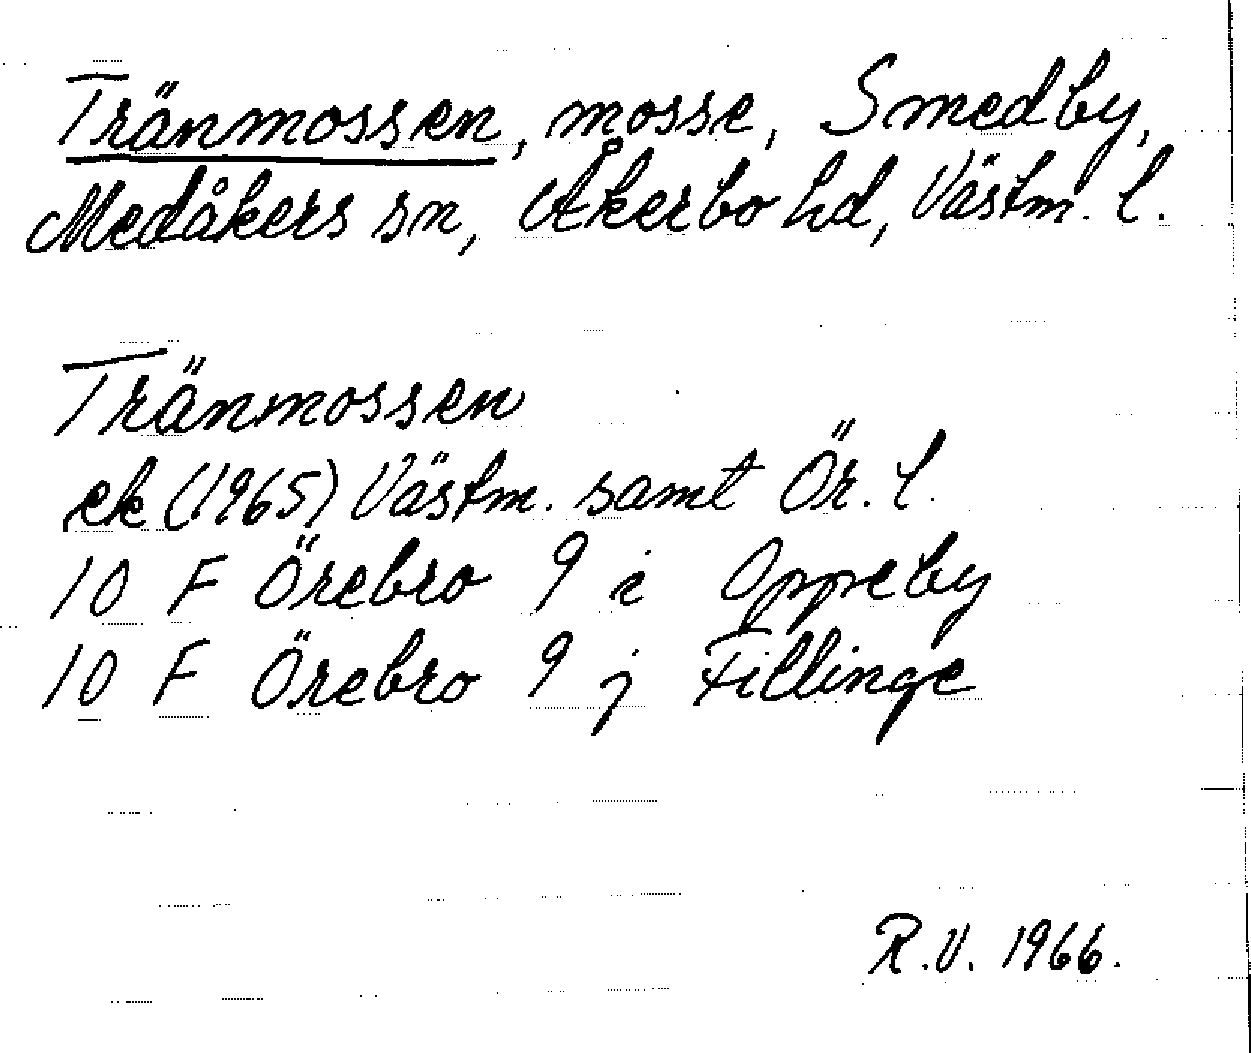 Tränmossen, mosse, Smedby,
Medåkers sn, Åkerbo hd, Västm. l.
Tränmossen
ek (1965) Västm. samt Ör. l.
10 F Örebro 9 i Oppeby
10 F Örebro 9 j Fillinge
R.V. 1966.